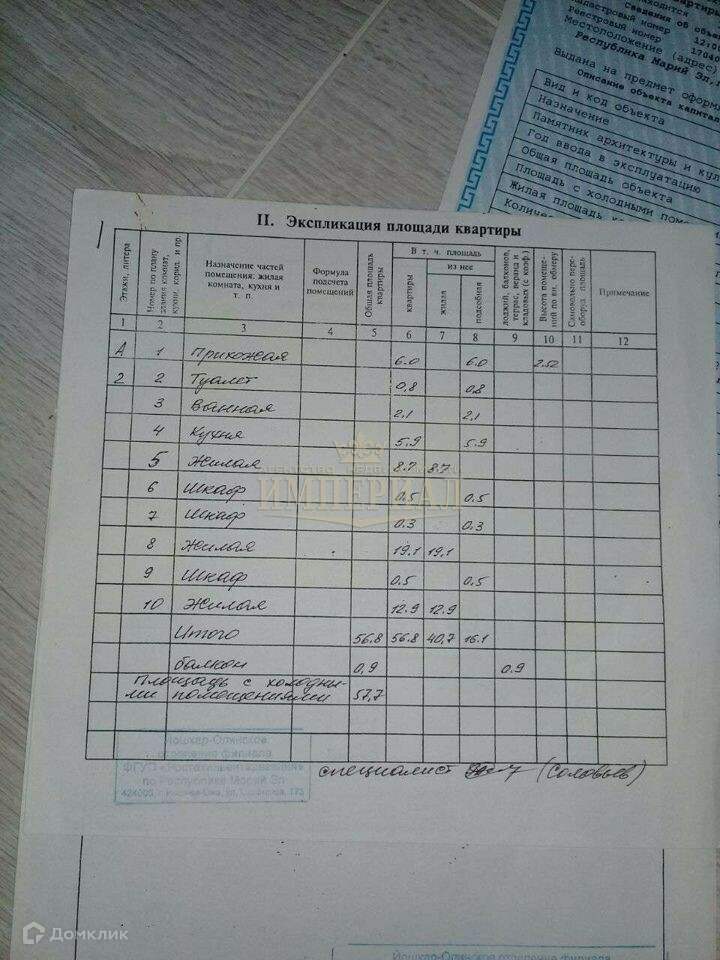 Сведения об объе
Кадастровый номер 12:0
Реестровый номер 17040
Местоположение (адрес)
Республика Марий Эл,
Выдана на предмет оформ
Описание объекта капитал
Вид и код объекта
Назначение
Памятник архитектуры и кул
Год ввода в эксплуатацию
Общая площадь объекта
Площадь с холодными пом
Жилая площадь
Количес
II. Экспликация площади квартиры
Этажи, литера
Номер по плану
Назначение частей помещения: жилая комната, кухня и т. п.
Формула подсчета помещений
Общая площадь квартиры
В т. ч. площадь
квартиры
из нее
жилая
подсобная
лоджий, балконов, террас, веранд и кладовых (с коэф.)
Высота помещений по вн. обмеру
Самовольно переоборуд. площадь
Примечание
1 2 3 4 5 6 7 8 9 10 11 12
А 1 Прихожая 6.0 6.0 2.52
2 2 Туалет 0,8 0,8
3 Ванная 2,1 2,1
4 Кухня 5,9 5,9
5 Жилая 8.7 8.7
АГЕНТСТВО НЕДВИЖИМОСТИ
ИМПЕРИАЛ
6 Шкаф 0.5 0.5
7 Шкаф 0.3 0.3
8 Жилая 19,1 19,1
9 Шкаф 0.5 0.5
10 Жилая 12.9 12.9
Итого 56.8 56.8 40,7 16.1
балкон 0,9 0.9
Площадь с холодны-
ми помещениями 57,7
Йошкар-Олинское
отделение филиала
ФГУП «Ростехинвентаризация»
по Республике Марий Эл
специалист (Соловьев)
Домклик
Йошкар-Олинское отделение филиала